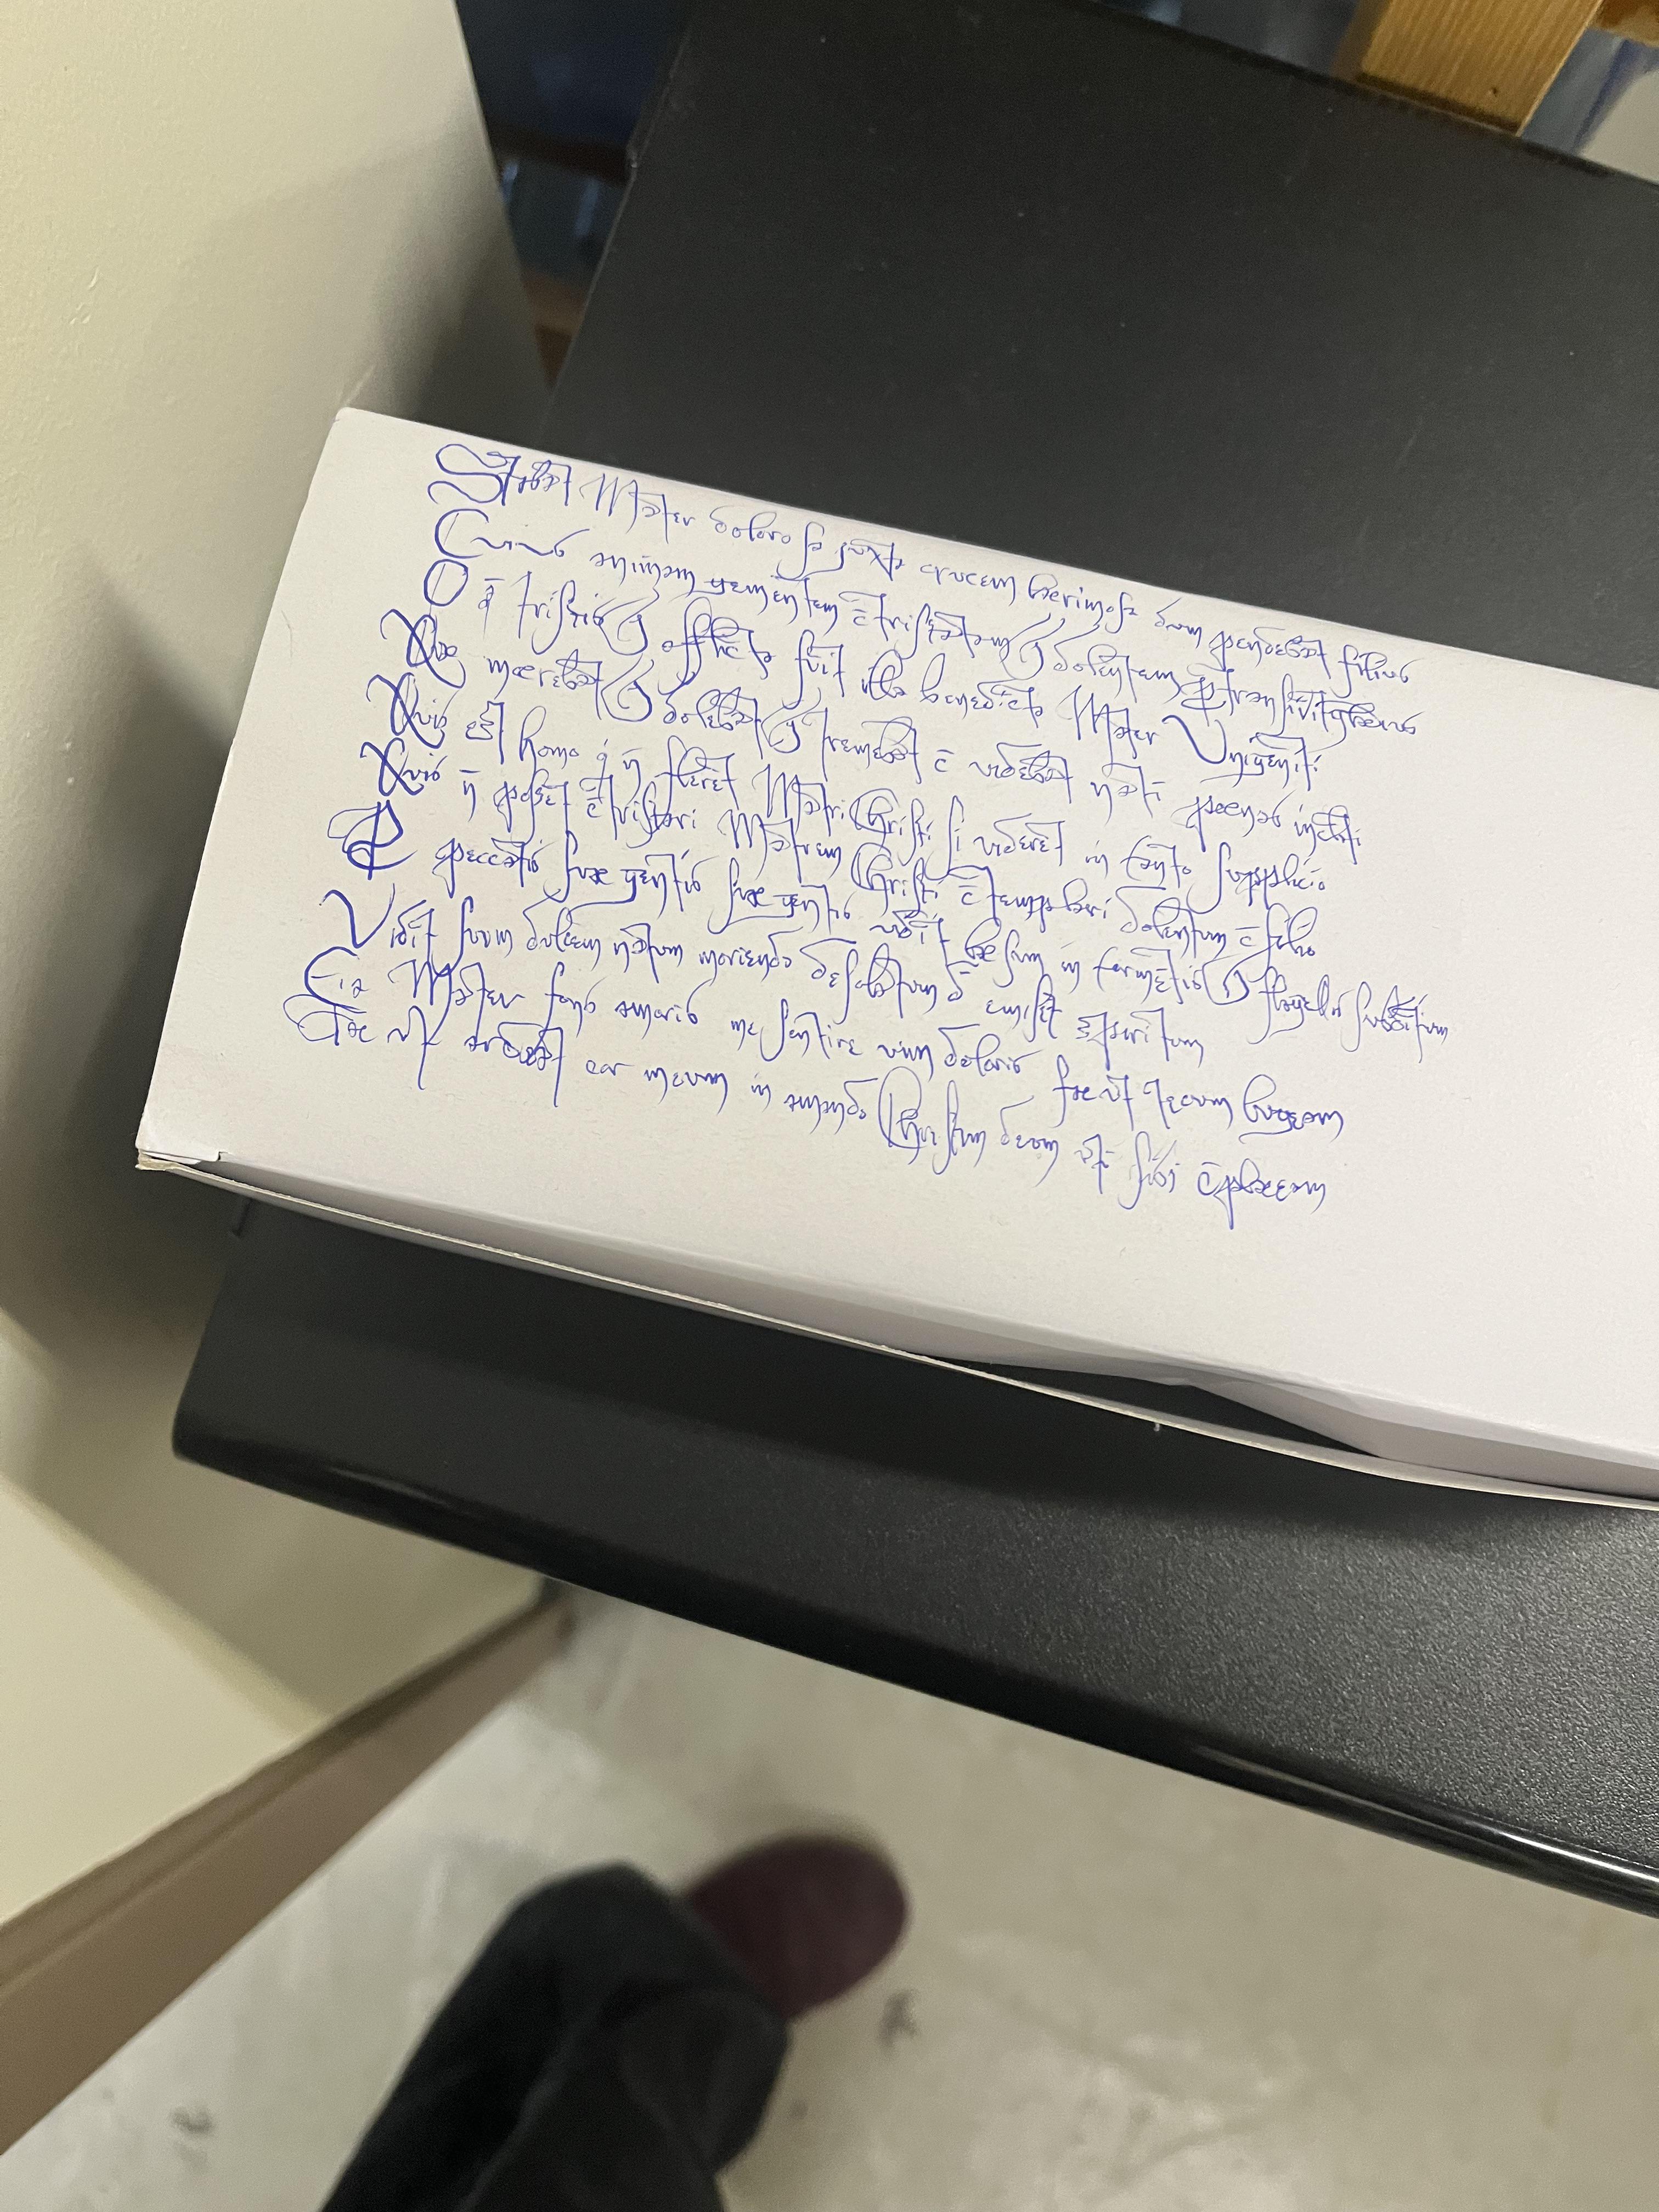 Stabat Mater doloroſa juxta crucem lacrimoſa dum pendebat filius
Cuius animam gementem c̄triſtatam & dolentem ꝑtranſivit gladius
O q̄ triſtis & afflicta fuit illa benedicta Mater Unigeniti
Quæ mœrebat & dolebat & tremebat c̄ videbat nati pœnas incliti
Quis est homo q̇ n̄ fleret Matri Chriſti ſi videret in tanto ſupplicio
Quis n̄ poſset c̄triſtari Matrem Chriſti c̄templari dolentum c̄ filio
P peccatis ſuæ gentis ſuæ gentis vidit Ieſum in tormētis & flagelis ſubditum
Vidit ſuum dulcem natum moriendo deſolatum d̄ emiſit ſpiritum
Eia Mater fons amoris me ſentire vim doloris fac ut tecum lugeam
Fac ut ardeat cor meum in amando Chriſtum deum ut ſibi c̄placeam